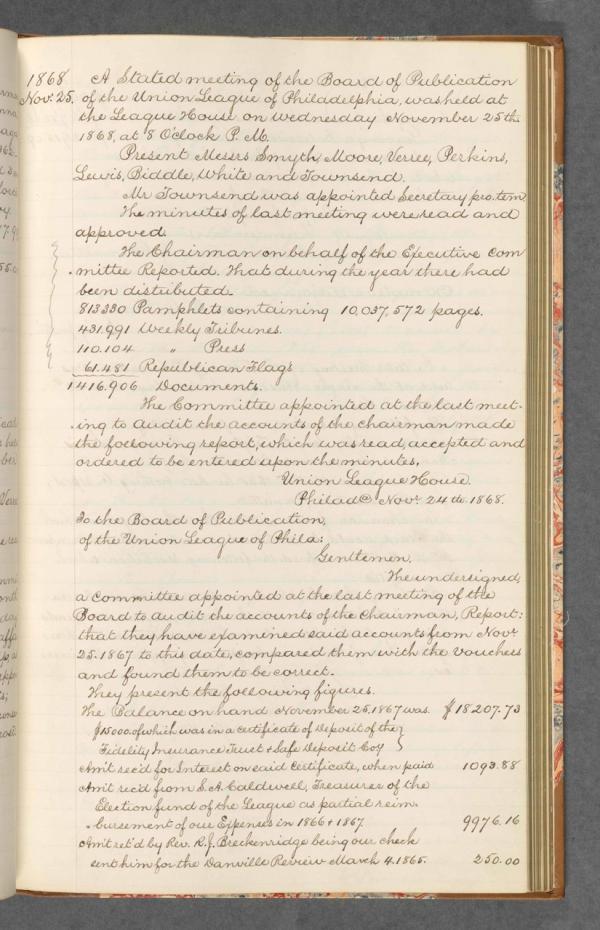 1868 A Stated meeting of the Board of Publication
Nov. 25. of the Union League of Philadelphia, was held at
the League House on Wednesday November 25th
1868, at 8 O'clock P. M.
Present Messrs Smyth, Moore, Verree, Perkins,
Lewis, Biddle, White and Townsend.
Mr Townsend was appointed Secretary pro. tem
The minutes of last meeting were read and
approved.
The Chairman on behalf of the Executive Com
mittee Reported. That during the year there had
been distributed.
813330 Pamphlets containing 10,037,572 pages.
431.991 Weekly Tribunes.
110.104 " Press
61.481 Republican Flags
1416.906 Documents.
The Committee appointed at the last meet-
ing to audit the accounts of the chairman made
the following report, which was read, accepted and
ordered to be entered upon the minutes,
Union League House.
Philada Nov. 24th 1868.
To the Board of Publication,
of the Union League of Phila:
Gentlemen.
The undersigned,
a committee appointed at the last meeting of the
Board to audit the accounts of the Chairman, Report:
that they have examined said accounts from Nov.
25. 1867 to this date, compared them with the vouchers
and found them to be correct.
They present the following figures.
The Balance on hand November 25, 1867 was $18207.73
$15000. of which was in a certificate of Deposit of the
Fidelity Insurance Trust & Safe Deposit Coy
Am't rec'd for Interest on said Certificate, when paid 1093.88
Am't rec'd from S. A. Caldwell, Treasurer of the
Election fund of the League as partial reim-
bursement of our Expenses in 1866 & 1867 9976.16
Am't ret'd by Rev. R. J. Breckenridge being our check
sent him for the Danville Review March 4. 1865. 250.00